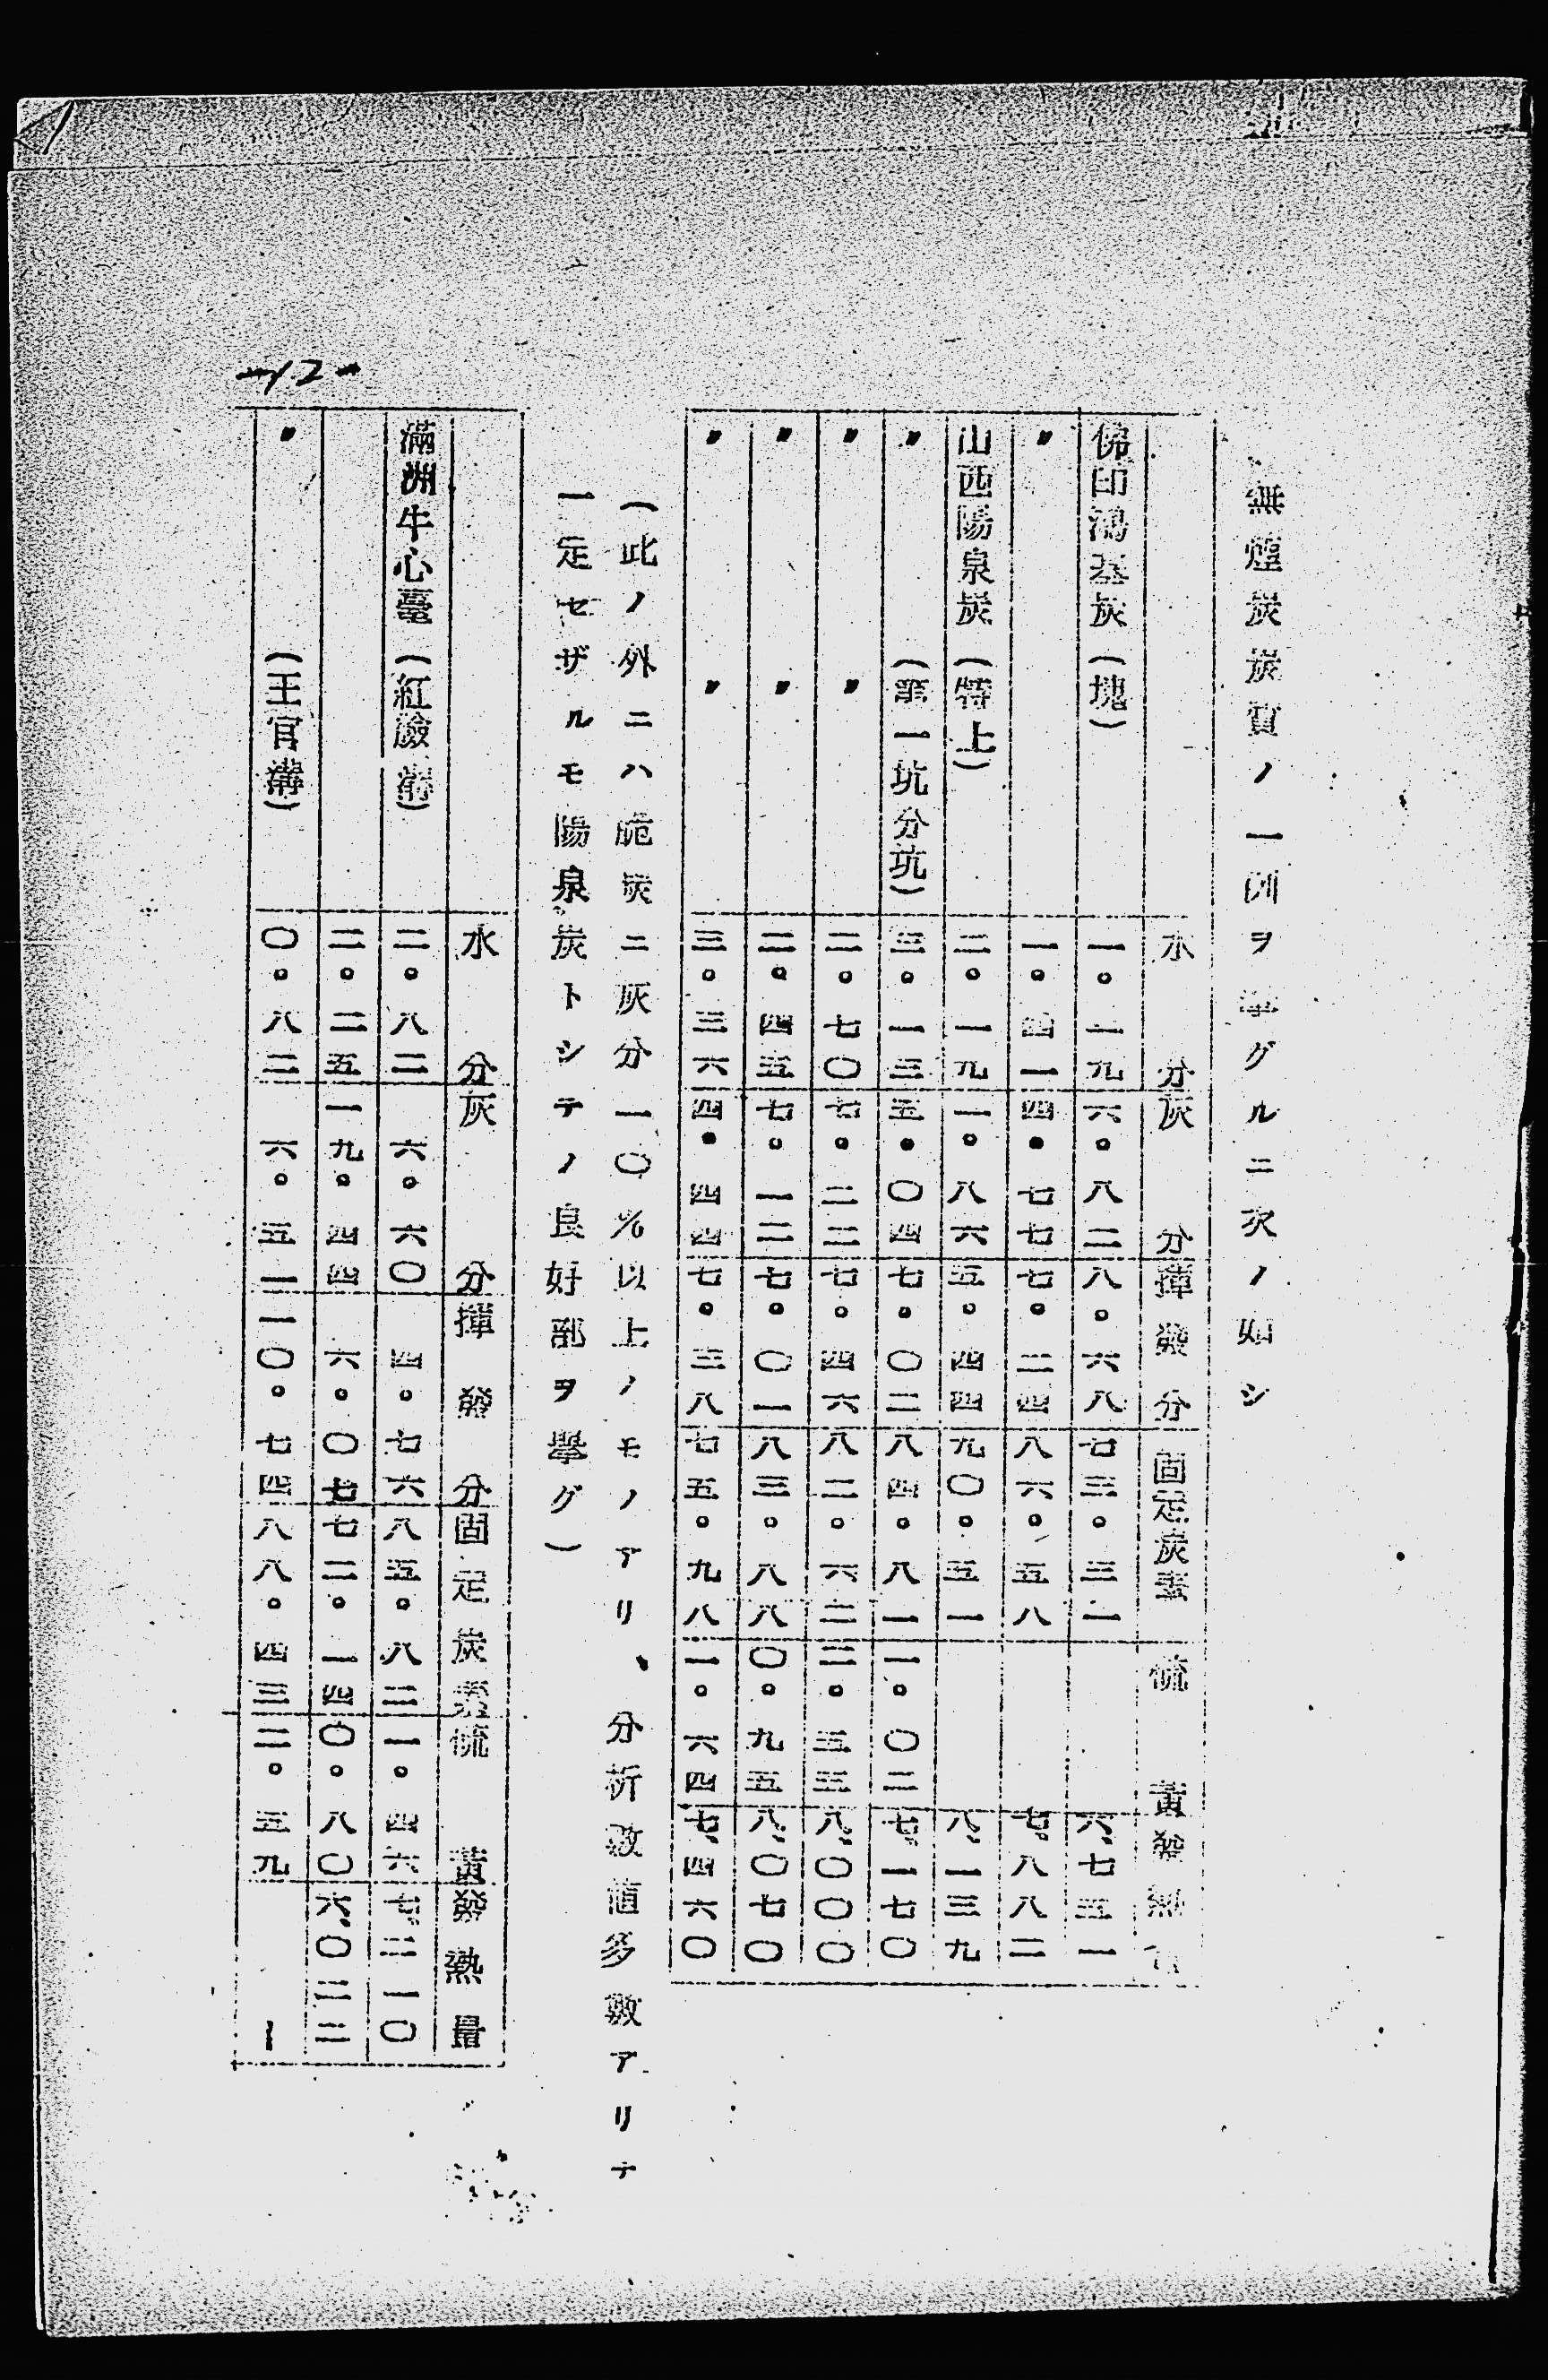 無煙炭炭質ノ一例ヲ擧グルニ次ノ如シ
水分 灰分 揮發分 固定炭素 硫黃 發熱量
佛印鴻基炭(塊) 一。二九 六。八二 八。六八 七三。三一 六、七五一
〃 一。四一 四。七七 七。二四 八六。五八 七、八八二
山西陽泉炭(特上) 二。一九 一。八六 五。四四 九〇。五一 八、一三九
〃(第一坑分坑) 三。一三 五。〇四 七。〇二 八四。八一 一。〇二 七、一七〇
〃 〃 二。七〇 七。二二 七。四六 八二。六二 八、〇〇〇
〃 〃 二。四五 七。一二 七。〇一 八三。八八 〇。九五 八、〇七〇
〃 〃 三。三六 四。四四 七。三八 七五。九八 一。六四 七、四六〇
(此ノ外ニハ脆炭ニ灰分一〇%以上ノモノアリ、分析数値多數アリテ
一定セザルモ陽泉炭トシテノ良好部ヲ擧グ)
水分 灰分 揮發分 固定炭素 硫黃 發熱量
滿洲牛心臺(紅臉溝) 二。八二 六。六〇 四。七六 八五。八二 一。四六 七、二一〇
二。二五 一九。四四 六。〇七 七二。一四 〇。八〇 六、〇二二
〃(王官溝) 〇。八二 六。五一 一〇。七四 八八。四三 二。五九 ー
-12-